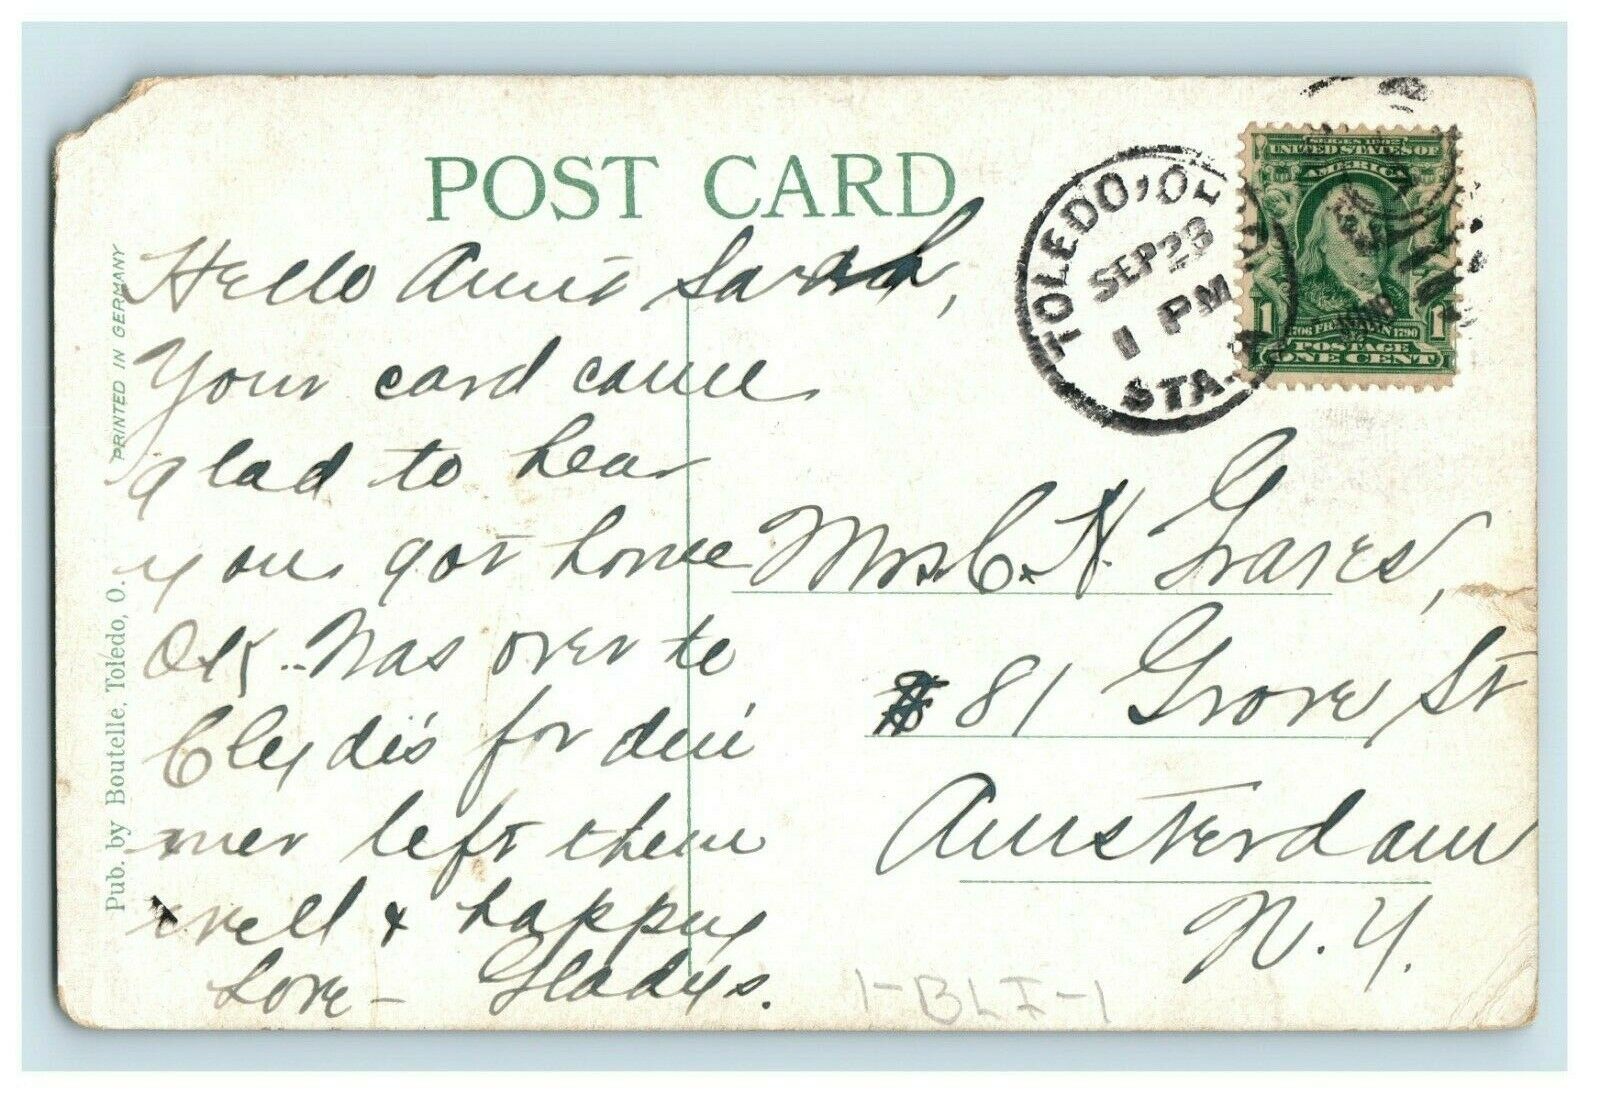 POST CARD
PRINTED IN GERMANY
Pub. by Boutelle, Toledo, O.
TOLEDO, O
SEP 23
1 PM
STA. A
SERIES 1902
UNITED STATES OF
AMERICA
1 1
1706 FRANKLIN 1790
POSTAGE
ONE CENT
Hello Aunt Sarah,
Your card came
glad to hear
you got home
OK. Was over to
Clydis for din
ner left them
well & happy
Love - Gladys.
Mrs. C. N. Graves,
# 81 Grove St
Amsterdam
N.Y.
1-BLI-1